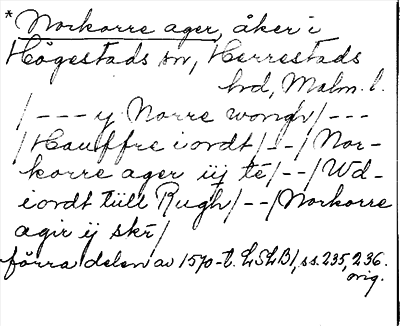 * Norkorre ager, åker i
Högestads sn, Herrestads
hrd, Malm. l.
/--- y Norre wongh/---
/Hauffre i ordt/--/Nor-
korre ager iij te/--/Ud-
i ordt tiill Rugh/--/Norkorre
agir ij skr/
förra delen av 1570-t. LSLB1, ss. 235, 236.
orig.